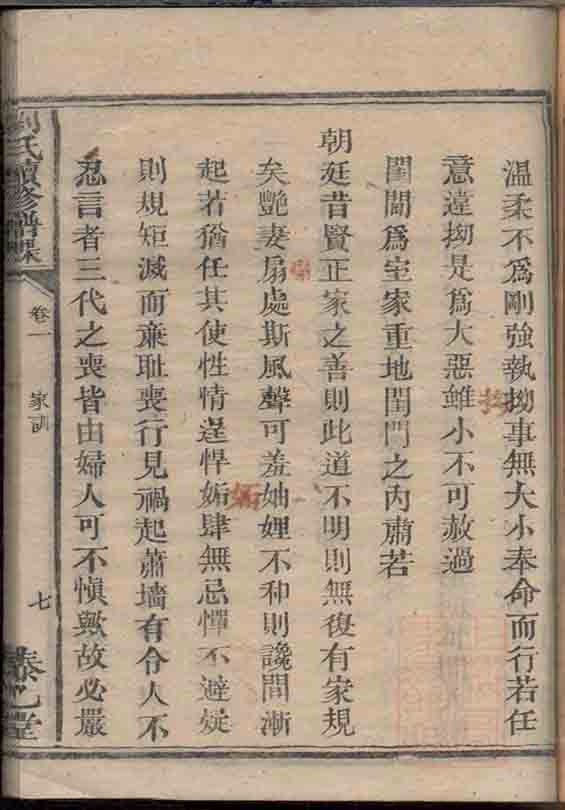 温柔不爲剛強執拗事無大小奉命而行若任
意違拗是爲大惡雖小不可赦過
閨閫爲室家重地閨門之內肅若
朝廷昔賢正家之善則此道不明則無復有家規
矣艷妻扇處斯風聲可羞妯娌不和則讒間漸
起若猶任其使性情逞悍妬肆無忌憚不避疑
則規矩滅而亷耻喪行見禍起蕭墻有令人不
忍言者三代之喪皆由婦人可不愼歟故必嚴
劉氏續修譜牒
卷一
家訓
七
拗
妬